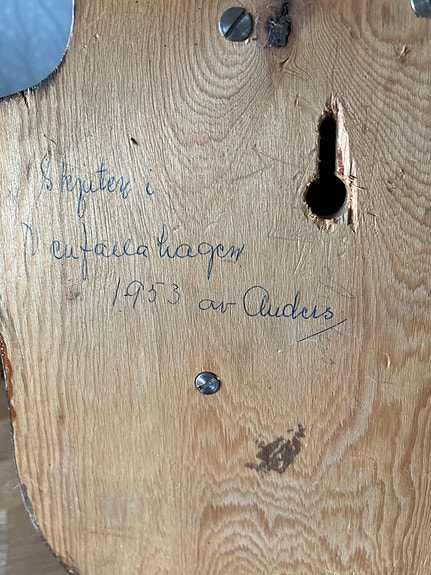 Skjuten i
hagen
1953 av Anders